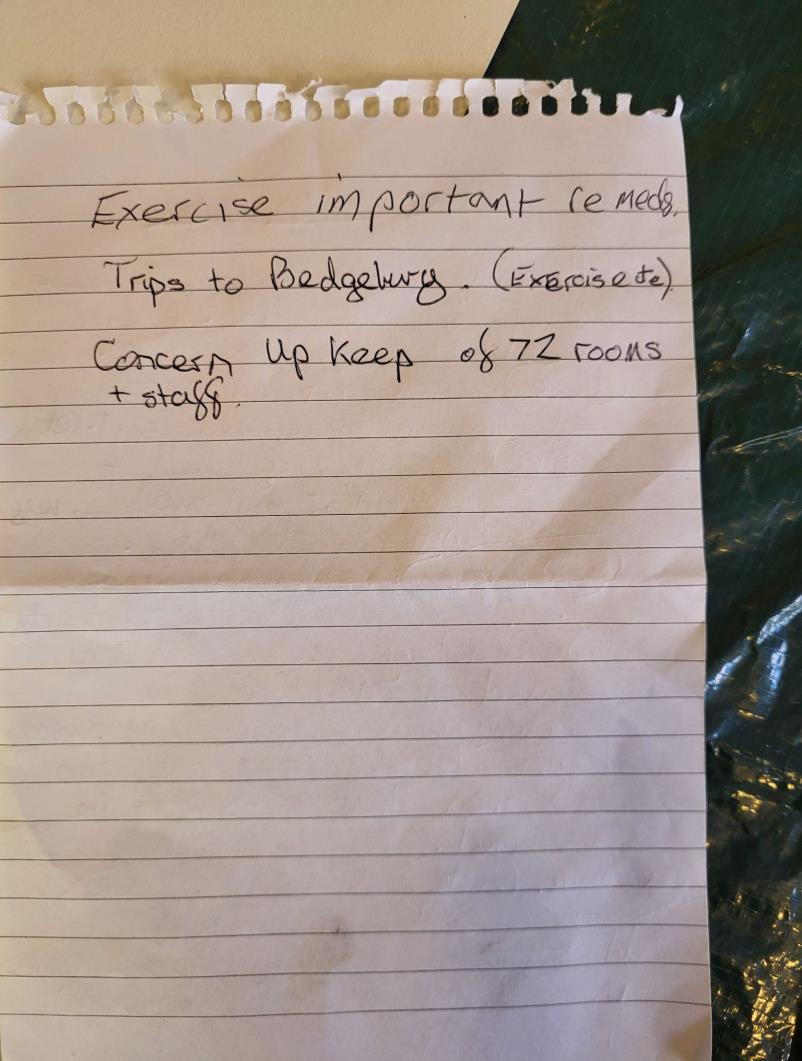 Exercise important re meds.
Trips to Bedgebury. (Exercise etc)
Concern Up Keep of 72 rooms
+ staff.